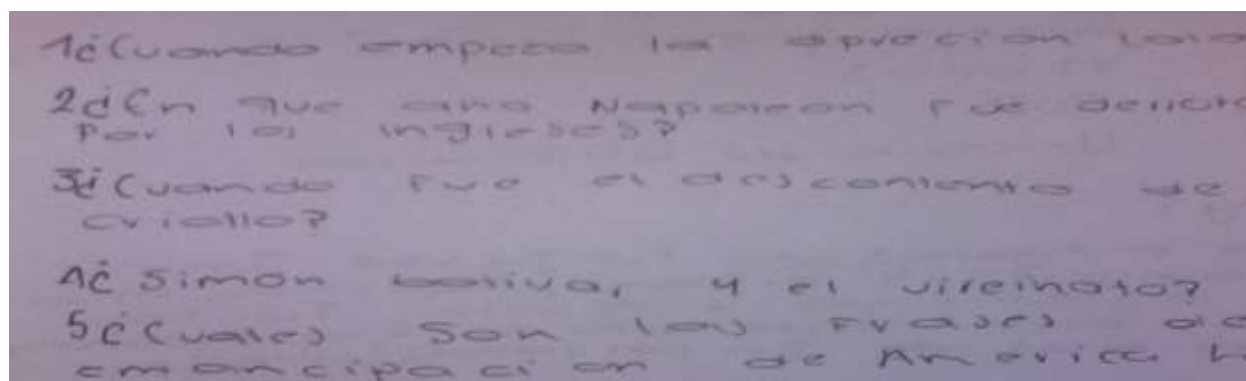 1¿Cuando empezo la opvecion
2¿En que año Napoleon Fue
Por los ingleses?
3¿Cuando Fue el descontento de
criollo?
4¿Simon bolivar y el vireinato?
5¿Cuales son las Frases de
emancipacion de America